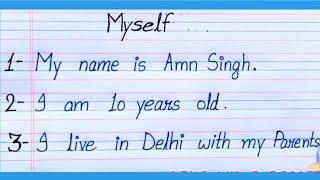 Myself ...
1- My name is Amn Singh.
2- I am 10 years old.
3- I live in Delhi with my Parents